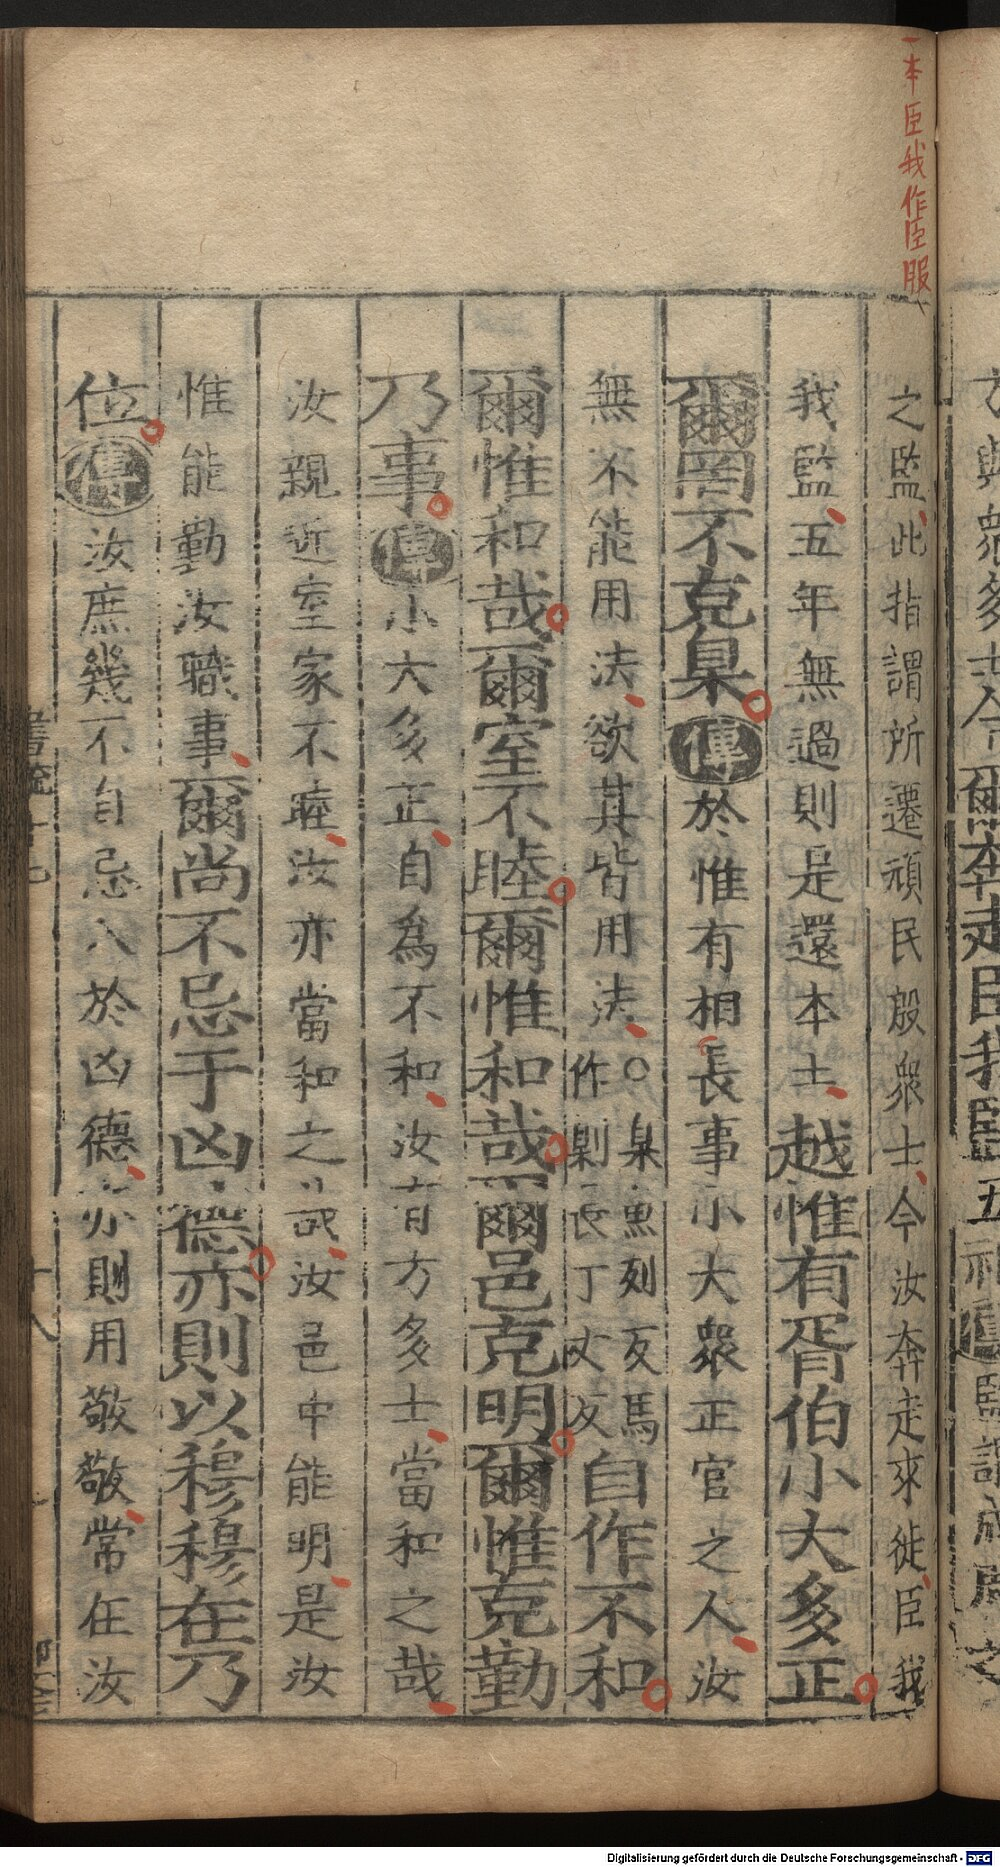 一本臣我作臣服
之監此指謂所遷頑民殷衆士今汝奔走來徙臣我
我監五年無過則是還本土越惟有胥伯小大多正
爾罔不克臬傳於惟有相長事小大衆正官之人汝
無不能用法欲其皆用法○臬魚列反馬作剝長丁丈反自作不和
爾惟和哉爾室不睦爾惟和哉爾邑克明爾惟克勤
乃事傳小大多正自為不和汝有方多士當和之哉
汝親近室家不睦汝亦當和之哉汝邑中能明是汝
惟能勤汝職事爾尚不忌于凶德亦則以穆穆在乃
位傳汝庶幾不自忌入於凶德亦則用敬敬常在汝
Digitalisierung gefördert durch die Deutsche Forschungsgemeinschaft - DFG